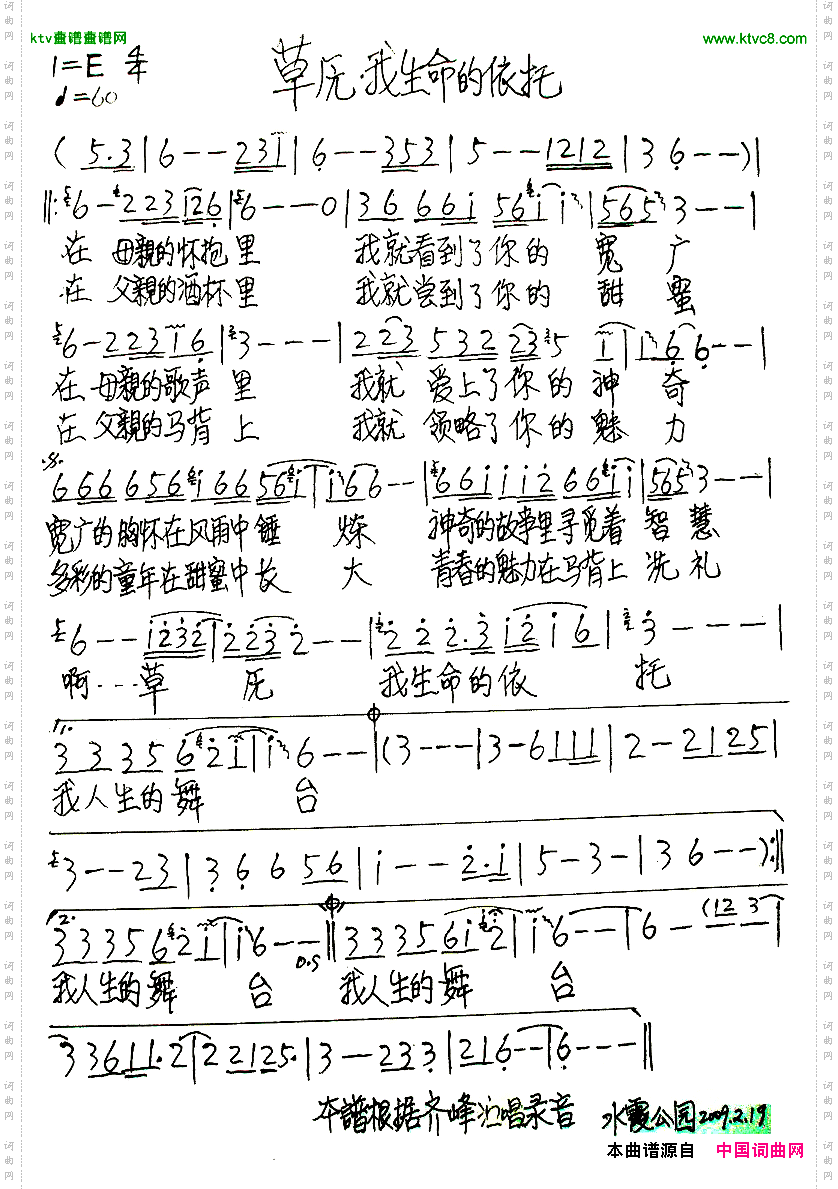 ktv曲谱曲谱网
www.ktvc8.com
草原·我生命的依托
1=E 4/4
♩=60
( 5.3 | 6 - - 2 3 i | 6 - - 3 5 3 | 5 - - 1 2 1 2 | 3 6 - - ) |
‖: 6 - 2 2 3 1 2 6 | 6 - - 0 | 3 6 6 6 i 5 6 i i | 5 6 5 3 - - |
在 母親的怀抱里 我就看到了你的 宽 广
在 父親的酒杯里 我就尝到了你的 甜 蜜
6 - 2 2 3 i 6 | 3 - - - | 2 2 3 5 3 2 2 3 5 i | i 6 6 - - |
在 母親的歌声里 我就 爱上了你的 神 奇
在 父親的马背上 我就 领略了你的 魅 力
6 6 6 6 5 6 i 6 6 5 6 i | i 6 6 - - | 6 6 i i i 2 6 6 i i | 5 6 5 3 - - |
宽广的胸怀在风雨中锤 炼 神奇的故事里寻觅着智 慧
多彩的童年在甜蜜中长 大 青春的魅力在马背上洗 礼
6 - - i 2 3 2 | 2 2 3 2 - - | 2 2 2 . 3 i 2 i 6 | 3 - - - |
啊…草 原 我生命的依 托
1. 3 3 3 5 6 2 i | i 6 - - | ( 3 - - - | 3 - 6 1 1 1 | 2 - 2 1 2 5 |
我人生的舞 台
3 - - 2 3 | 3 6 6 5 6 | i - - 2 . i | 5 - 3 - | 3 6 - - ) :‖
2. 3 3 3 5 6 2 i | i 6 - - ‖ 3 3 3 5 6 i 2 | i 6 - - | 6 - ( 1 2 3
D.S
我人生的舞 台 我人生的舞 台
3 3 6 1 1 . 2 | 2 2 1 2 5 . | 3 - 2 3 3 | 2 1 6 - - | 6 - - - ‖
本譜根据齐峰演唱录音 水霞公园 2009.2.19
本曲谱源自 中国词曲网
词曲网